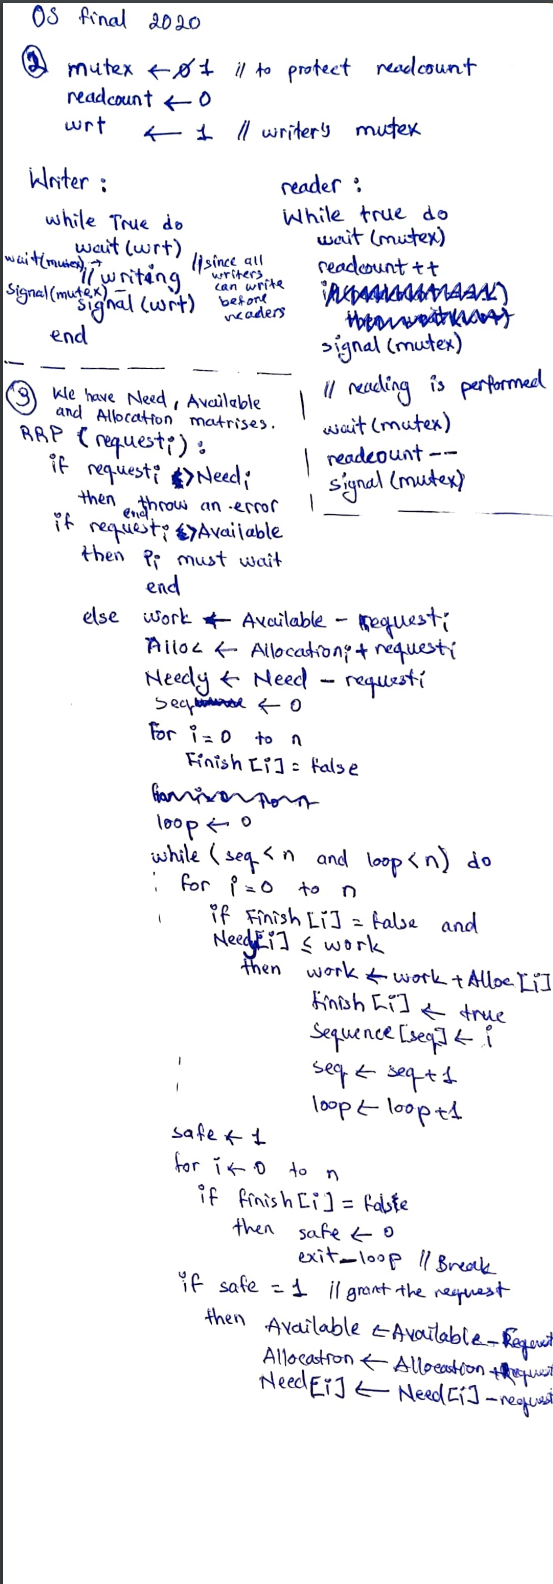 OS final 2020
② mutex ← 1 // to protect readcount
readcount ← 0
wrt ← 1 // writer's mutex
Writer :
while True do
wait (wrt)
wait(mutex) →
// writing
signal(mutex) –
signal (wrt)
end
// since all
writers
can write
before
readers
reader :
While true do
wait (mutex)
readcount ++
signal (mutex)
// reading is performed
wait (mutex)
readcount --
signal (mutex)
③ We have Need, Available
and Allocation matrises.
RRP (requesti) :
if requesti > Needi
then throw an error
end
if requesti > Available
then Pi must wait
end
else work ← Available - requesti
Alloc ← Allocationi + requesti
Needy ← Need - requesti
seq ← 0
for i = 0 to n
Finish [i] = false
loop ← 0
while (seq < n and loop < n) do
for i = 0 to n
if Finish [i] = false and
Needy[i] ≤ work
then work ← work + Alloc [i]
finish [i] ← true
Sequence [seq] ← i
seq ← seq + 1
loop ← loop + 1
safe ← 1
for i ← 0 to n
if finish [i] = false
then safe ← 0
exit_loop // Break
if safe = 1 // grant the request
then Available ← Available - Request
Allocation ← Allocation + Request
Need[i] ← Need[i] - request